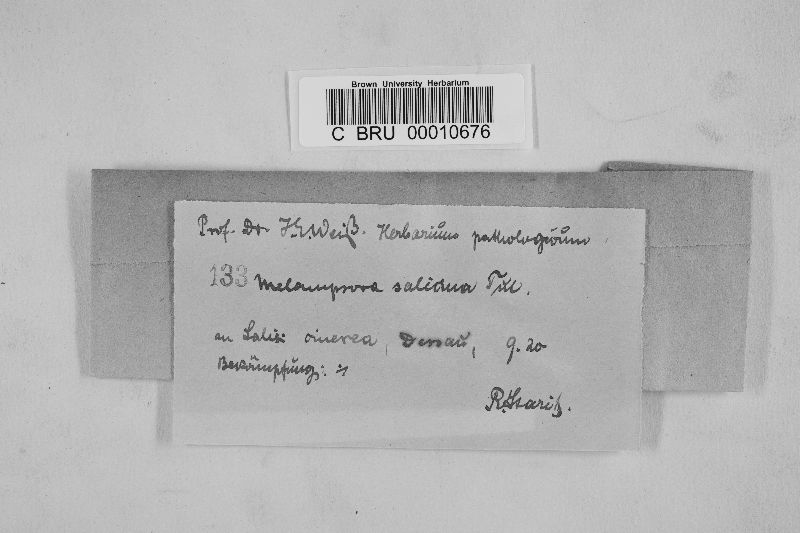 Brown University Herbarium
C BRU 00010676
Prof. Dr. Weiß. Herbarium pathologicum
133 Melampsora salicina Tul.
an Salix cinerea, Dessau, 9. 20
Bekämpfung:
R. Staritz.